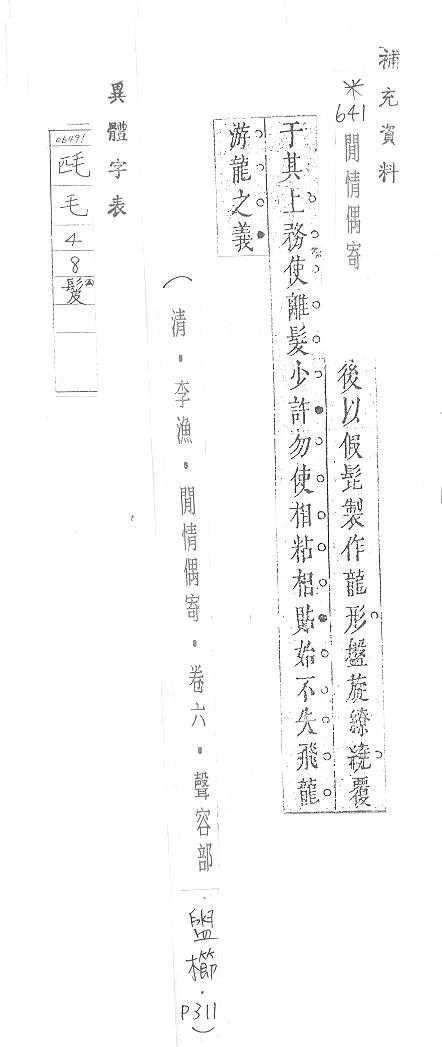 補充資料
※641 閒情偶寄
後以假髢製作龍形盤旋繚繞覆
于其上務使離髮少許勿使相粘相貼始不失飛龍
游龍之義
（清．李漁．閒情偶寄．卷六．聲容部．盥櫛．P311）
異體字表
06491
毛
4
8
髮